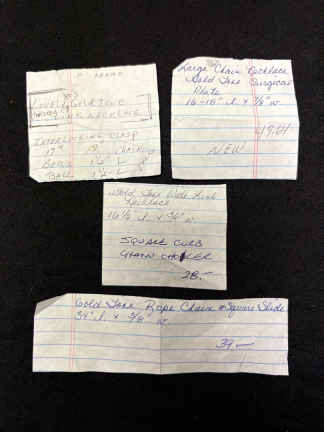 LOVELY GOLDTONE
NECKLACE
INTERLOCKING CLASP
17"
BALL 1½" L
Large Chain Necklace
Gold Tone Surgical
Plate
16-18" l x 3/8" w
NEW
Gold Tone Wide Link
Necklace
16½ l x 3/4" w
SQUARE CURB
CHAIN CHOKER
28.-
Gold Tone Rope Chain w Square Slide
34" l x 3/8" w.
39.-